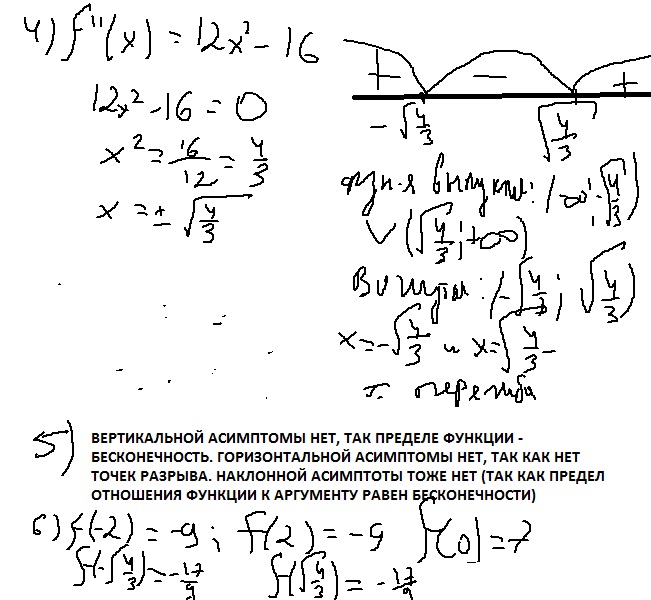 4) f''(x) = 12x² - 16
12x² - 16 = 0
x² = 16/12 = 4/3
x = ± √4/3
+ - +
- √4/3 √4/3
функ-я выпукла: (-∞; -√4/3)
∪ (√4/3; +∞)
Вогнута: (-√4/3; √4/3)
x = -√4/3 и x = √4/3 -
т. перегиба
5) ВЕРТИКАЛЬНОЙ АСИМПТОМЫ НЕТ, ТАК ПРЕДЕЛЕ ФУНКЦИИ -
БЕСКОНЕЧНОСТЬ. ГОРИЗОНТАЛЬНОЙ АСИМПТОМЫ НЕТ, ТАК КАК НЕТ
ТОЧЕК РАЗРЫВА. НАКЛОННОЙ АСИМПТОТЫ ТОЖЕ НЕТ (ТАК КАК ПРЕДЕЛ
ОТНОШЕНИЯ ФУНКЦИИ К АРГУМЕНТУ РАВЕН БЕСКОНЕЧНОСТИ)
6) f(-2) = -9; f(2) = -9 f(0) = 7
f(-√4/3) = -17/9 f(√4/3) = -17/9